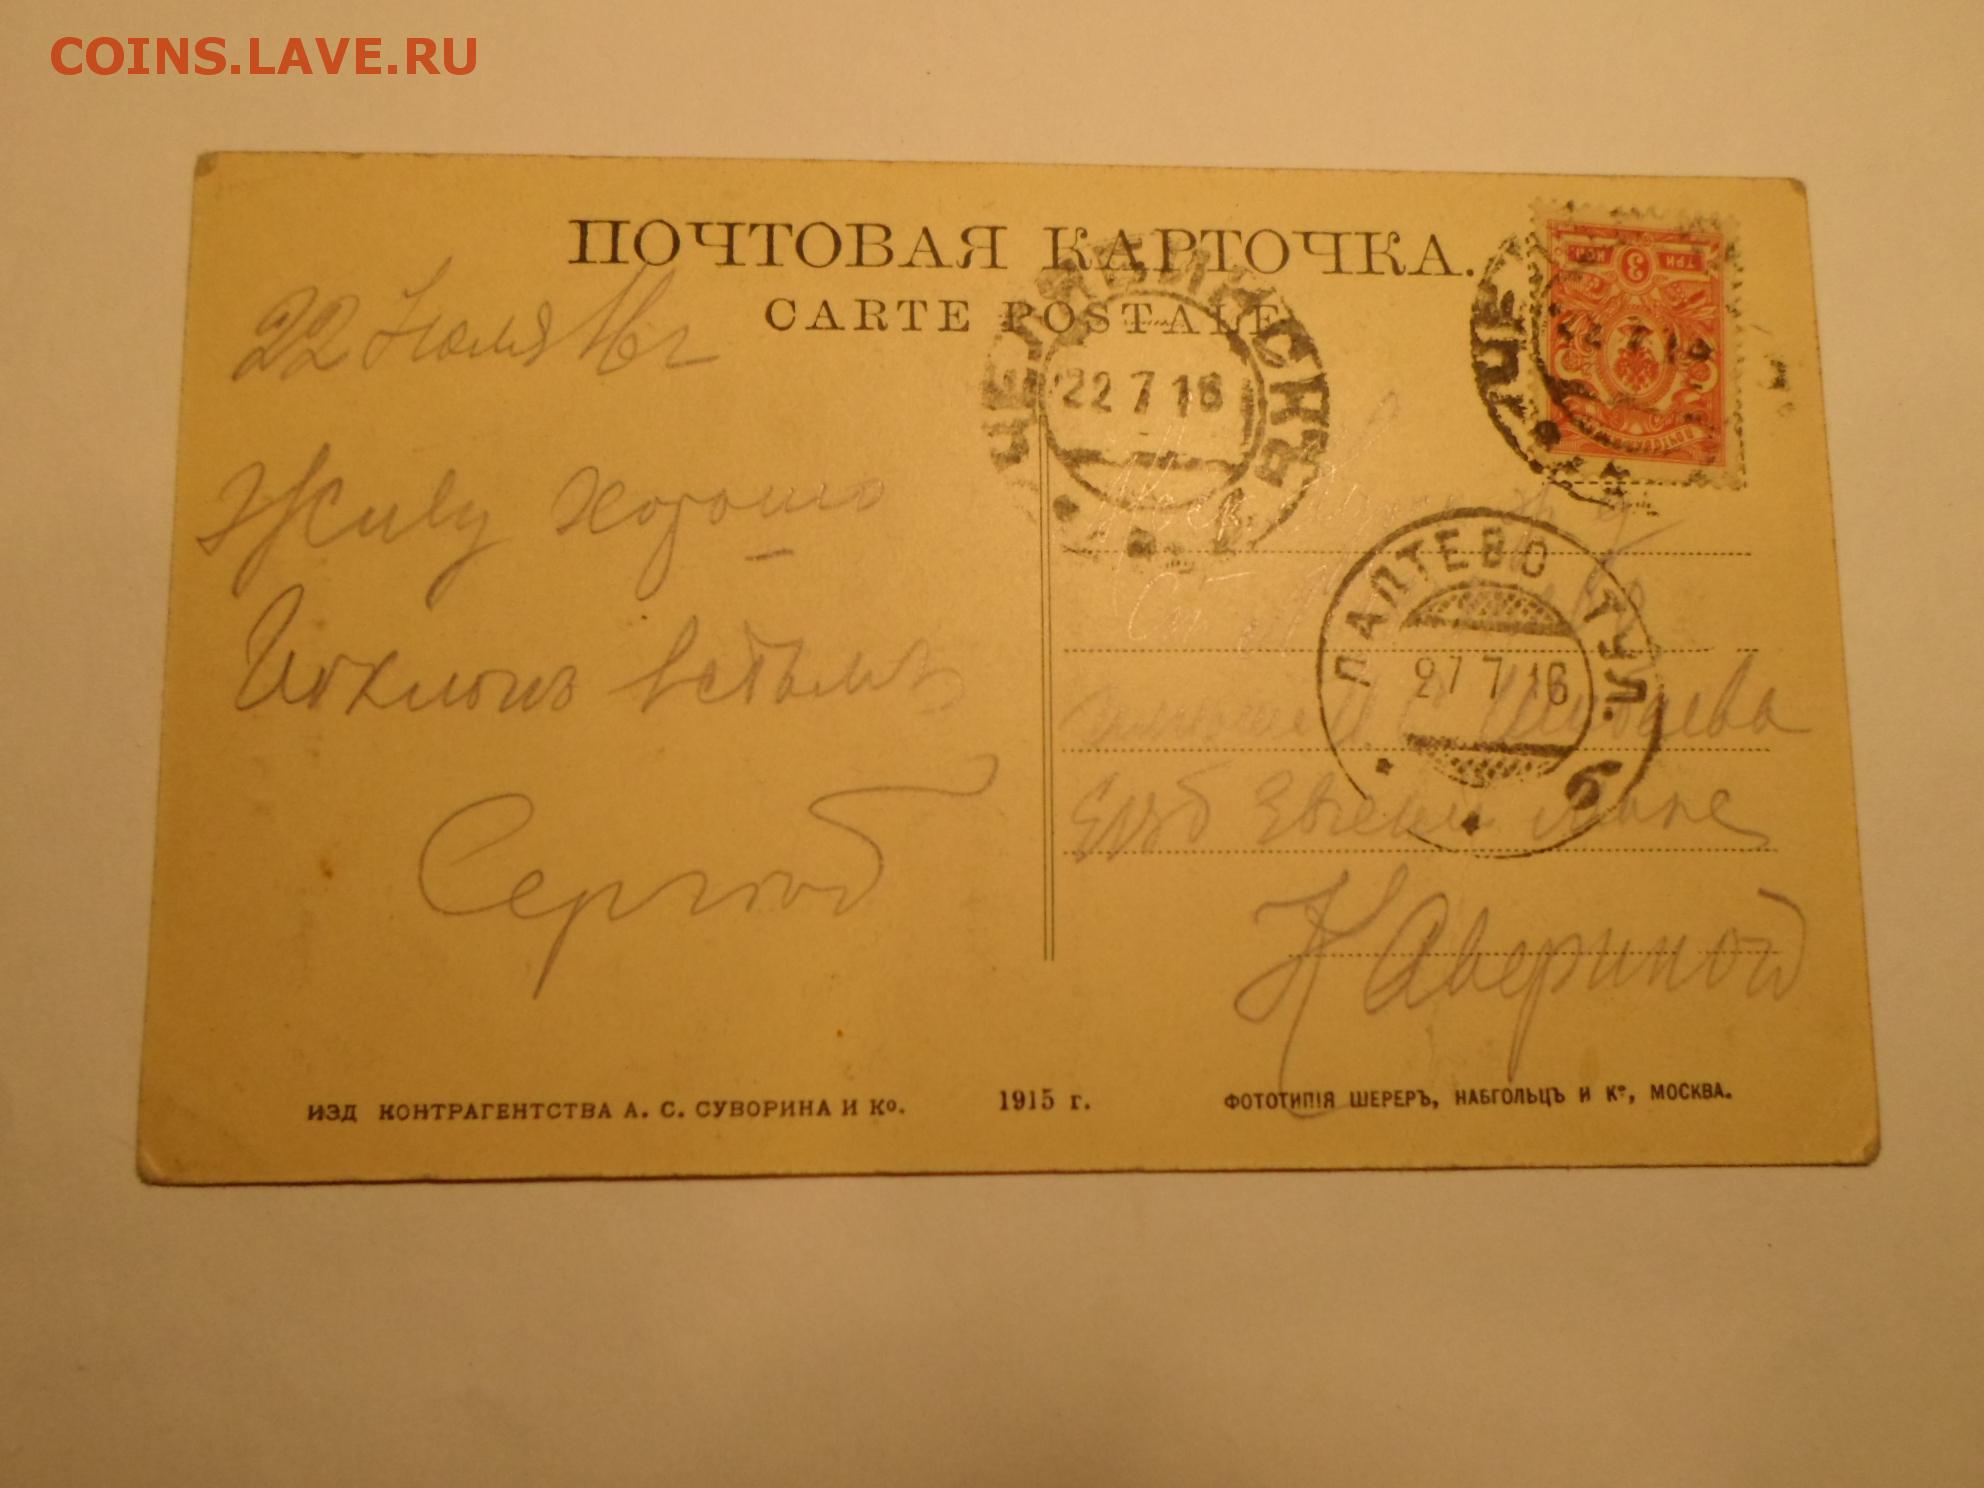 COINS.LAVE.RU
ПОЧТОВАЯ КАРТОЧКА.
CARTE POSTALE
22 Июля 16 г
Живу хорошо
Поклонъ всѣмъ
Сергѣй
ЧЕЛЯБИНСКЪ
22 7 16
ТРИ 3 КОП
ЧЕ
22 7 16
ПАЛТЕВО ТУЛ.
27 7 16
б
Шибаева
Евгени
К Авериной
ИЗД КОНТРАГЕНТСТВА А. С. СУВОРИНА И Ко. 1915 г. ФОТОТИПІЯ ШЕРЕРЪ, НАБГОЛЬЦЪ И Ко, МОСКВА.